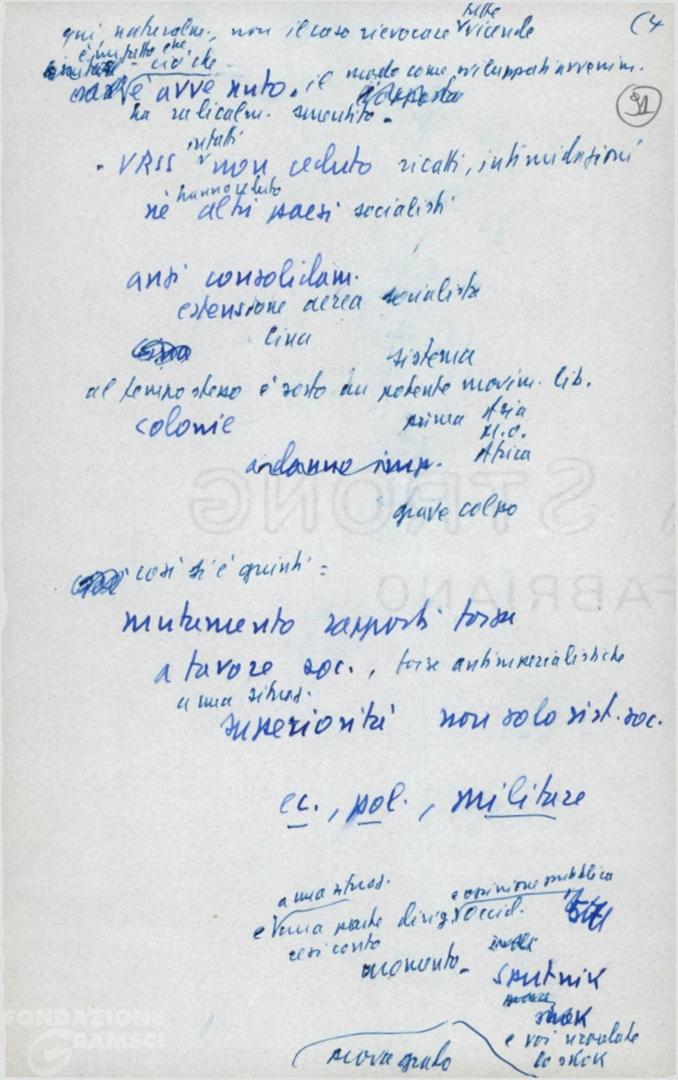 qui, naturalm., non il caso rievocare tutte vicende
(4
è tutto che
ciò che
è avvenuto. il modo come sviluppati avvenim.
ha radicalm. smentito.
91
infatti
- URSS non ceduto ricatti, intimidazioni
hanno ceduto
né altri paesi socialisti
anzi consolidam.
estensione aerea socialista
Cina
sistema
al tempo stesso è sorto un potente movim. lib.
colonie
prima Asia
M.O.
Africa
a danno imp.
grave colpo
così si è giunti =
mutamento rapporti forze
a favore soc., forze antimperialistiche
a una situaz.
superiorità non solo sist. soc.
ec., pol., militare
a una situaz.
e opinione pubblica
e una parte dirig. occid.
57
resi conto
momento -
SPUTNIK
e voi ricordate
lo shok
prova grado
STRONG
FABRIANO
FONDAZIONE
GRAMSCI